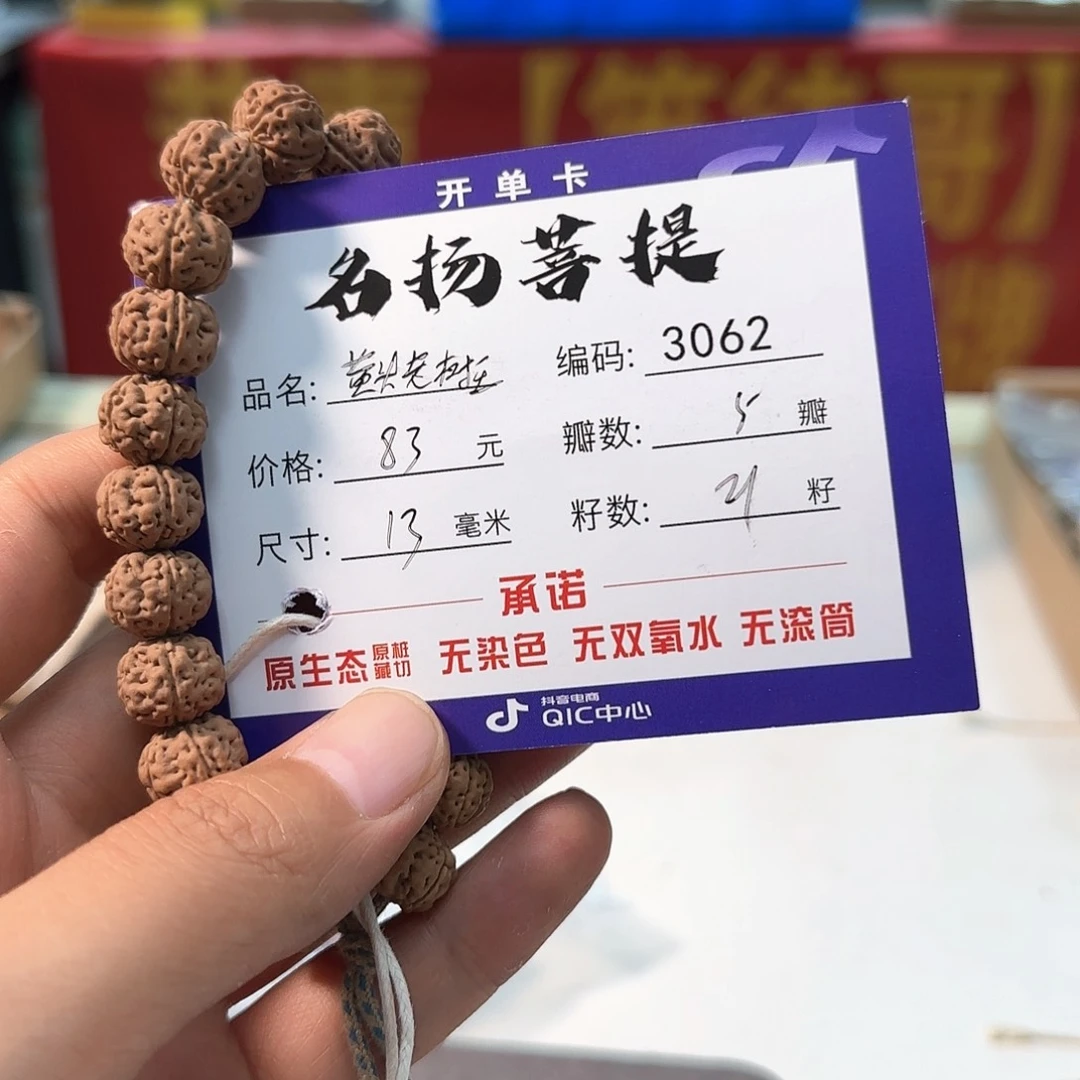 【笨纳哥】
开单卡
名扬菩提
品名: 黄肉老树桩
编码: 3062
价格: 83 元
瓣数: 5 瓣
尺寸: 13 毫米
籽数: 21 籽
承诺
原生态 原桩藏切 无染色 无双氧水 无滚筒
抖音电商
QIC中心